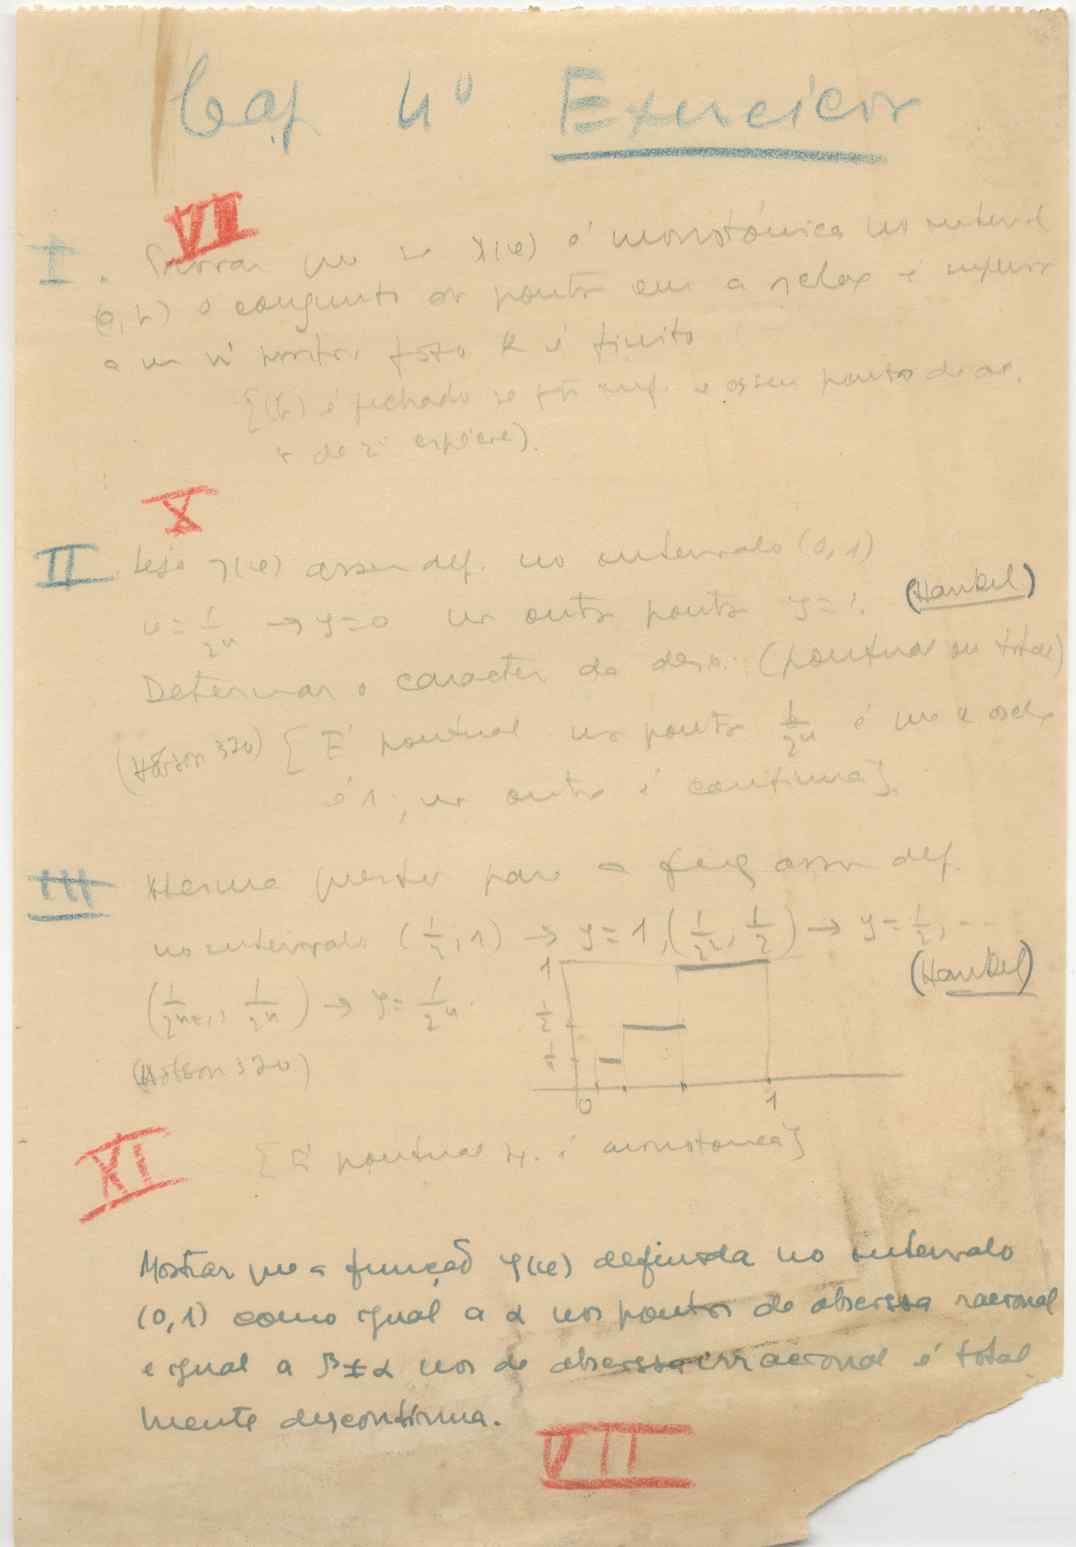 Cap 4º Exercicios
VII
I. Provar que se y(x) é monotónica no interval
(a, b) o conjunto dos pontos em que a oscil é superior
a um nº positivo fixo k é finito
é fechado se
de 2ª espécie).
X
II Seja y(x) assim def. no intervalo (0,1)
x = 1/2ⁿ → y=0 nos outros pontos y=1. (Hankel)
Determinar o caracter da desc. (pontual ou total)
(Hobson 320) [É pontual nos pontos 1/2ⁿ é =0 a oscil
é 1; nos outros é contínua].
III Mesma questão para a função assim def.
no intervalo (1/2, 1) → y = 1, (1/2², 1/2) → y = 1/2, ...
(1/2ⁿ⁺¹, 1/2ⁿ) → y = 1/2ⁿ. (Hankel)
(Hobson 320)
1
1/2
1/4
0 1
XI
[É pontual é monotónica]
Mostrar que a função y(x) definida no intervalo
(0,1) como igual a α nos pontos de abscissa racional
e igual a β≠α nos de abscissa irracional é total
mente descontínua.
VII